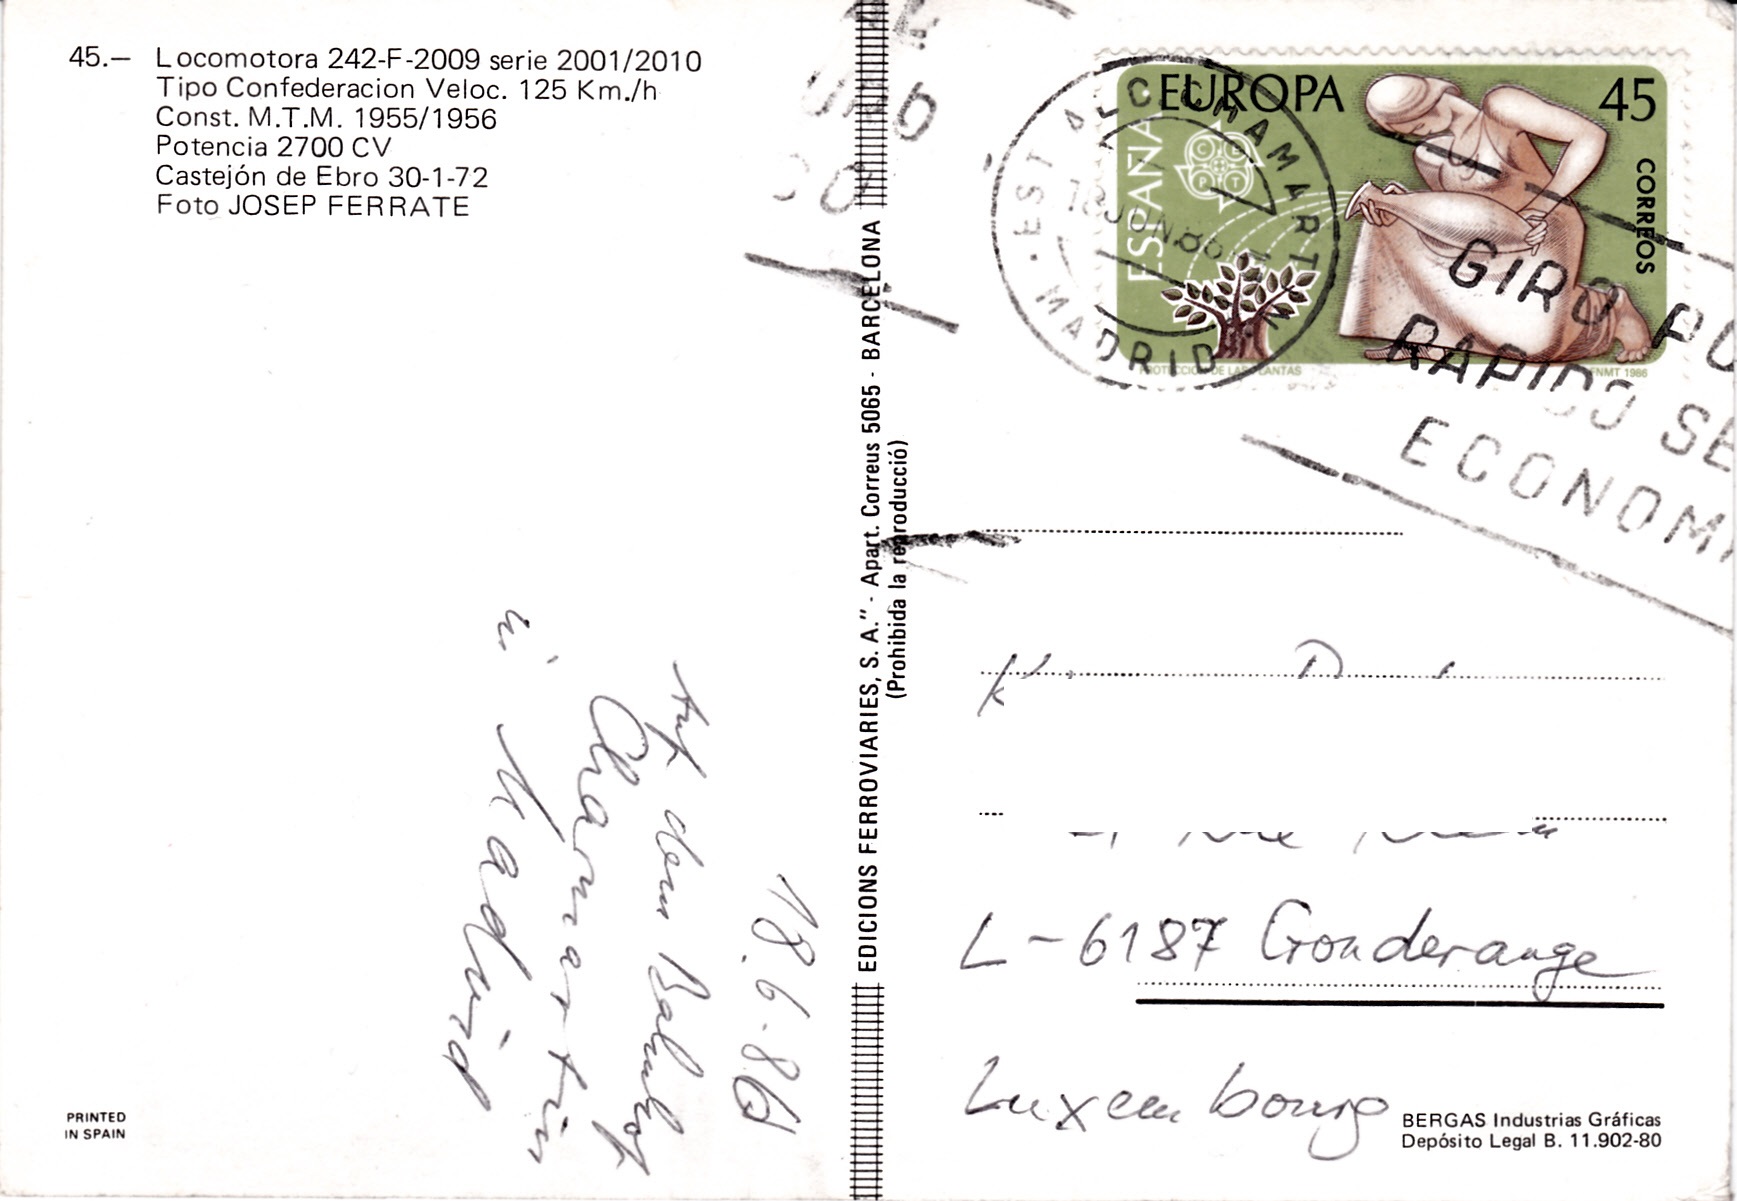 45.— Locomotora 242-F-2009 serie 2001/2010
Tipo Confederacion Veloc. 125 Km./h
Const. M.T.M. 1955/1956
Potencia 2700 CV
Castejón de Ebro 30-1-72
Foto JOSEP FERRATE
18.6.86
Auf dem Bahnhof
Chamartin
in Madrid
PRINTED
IN SPAIN
EDICIONS FERROVIARIES, S. A." - Apart. Correus 5065 - BARCELONA
(Prohibida la reproducció)
EUROPA 45
ESPAÑA
CEPT
CORREOS
PROTECCION DE LAS PLANTAS
FNMT 1986
EST ALC. CHAMARTIN
18 JUN 86
MADRID
GIRO PO
RAPIDO SE
ECONOM
L-6187 Gonderange
Luxembourg
BERGAS Industrias Gráficas
Depósito Legal B. 11.902-80